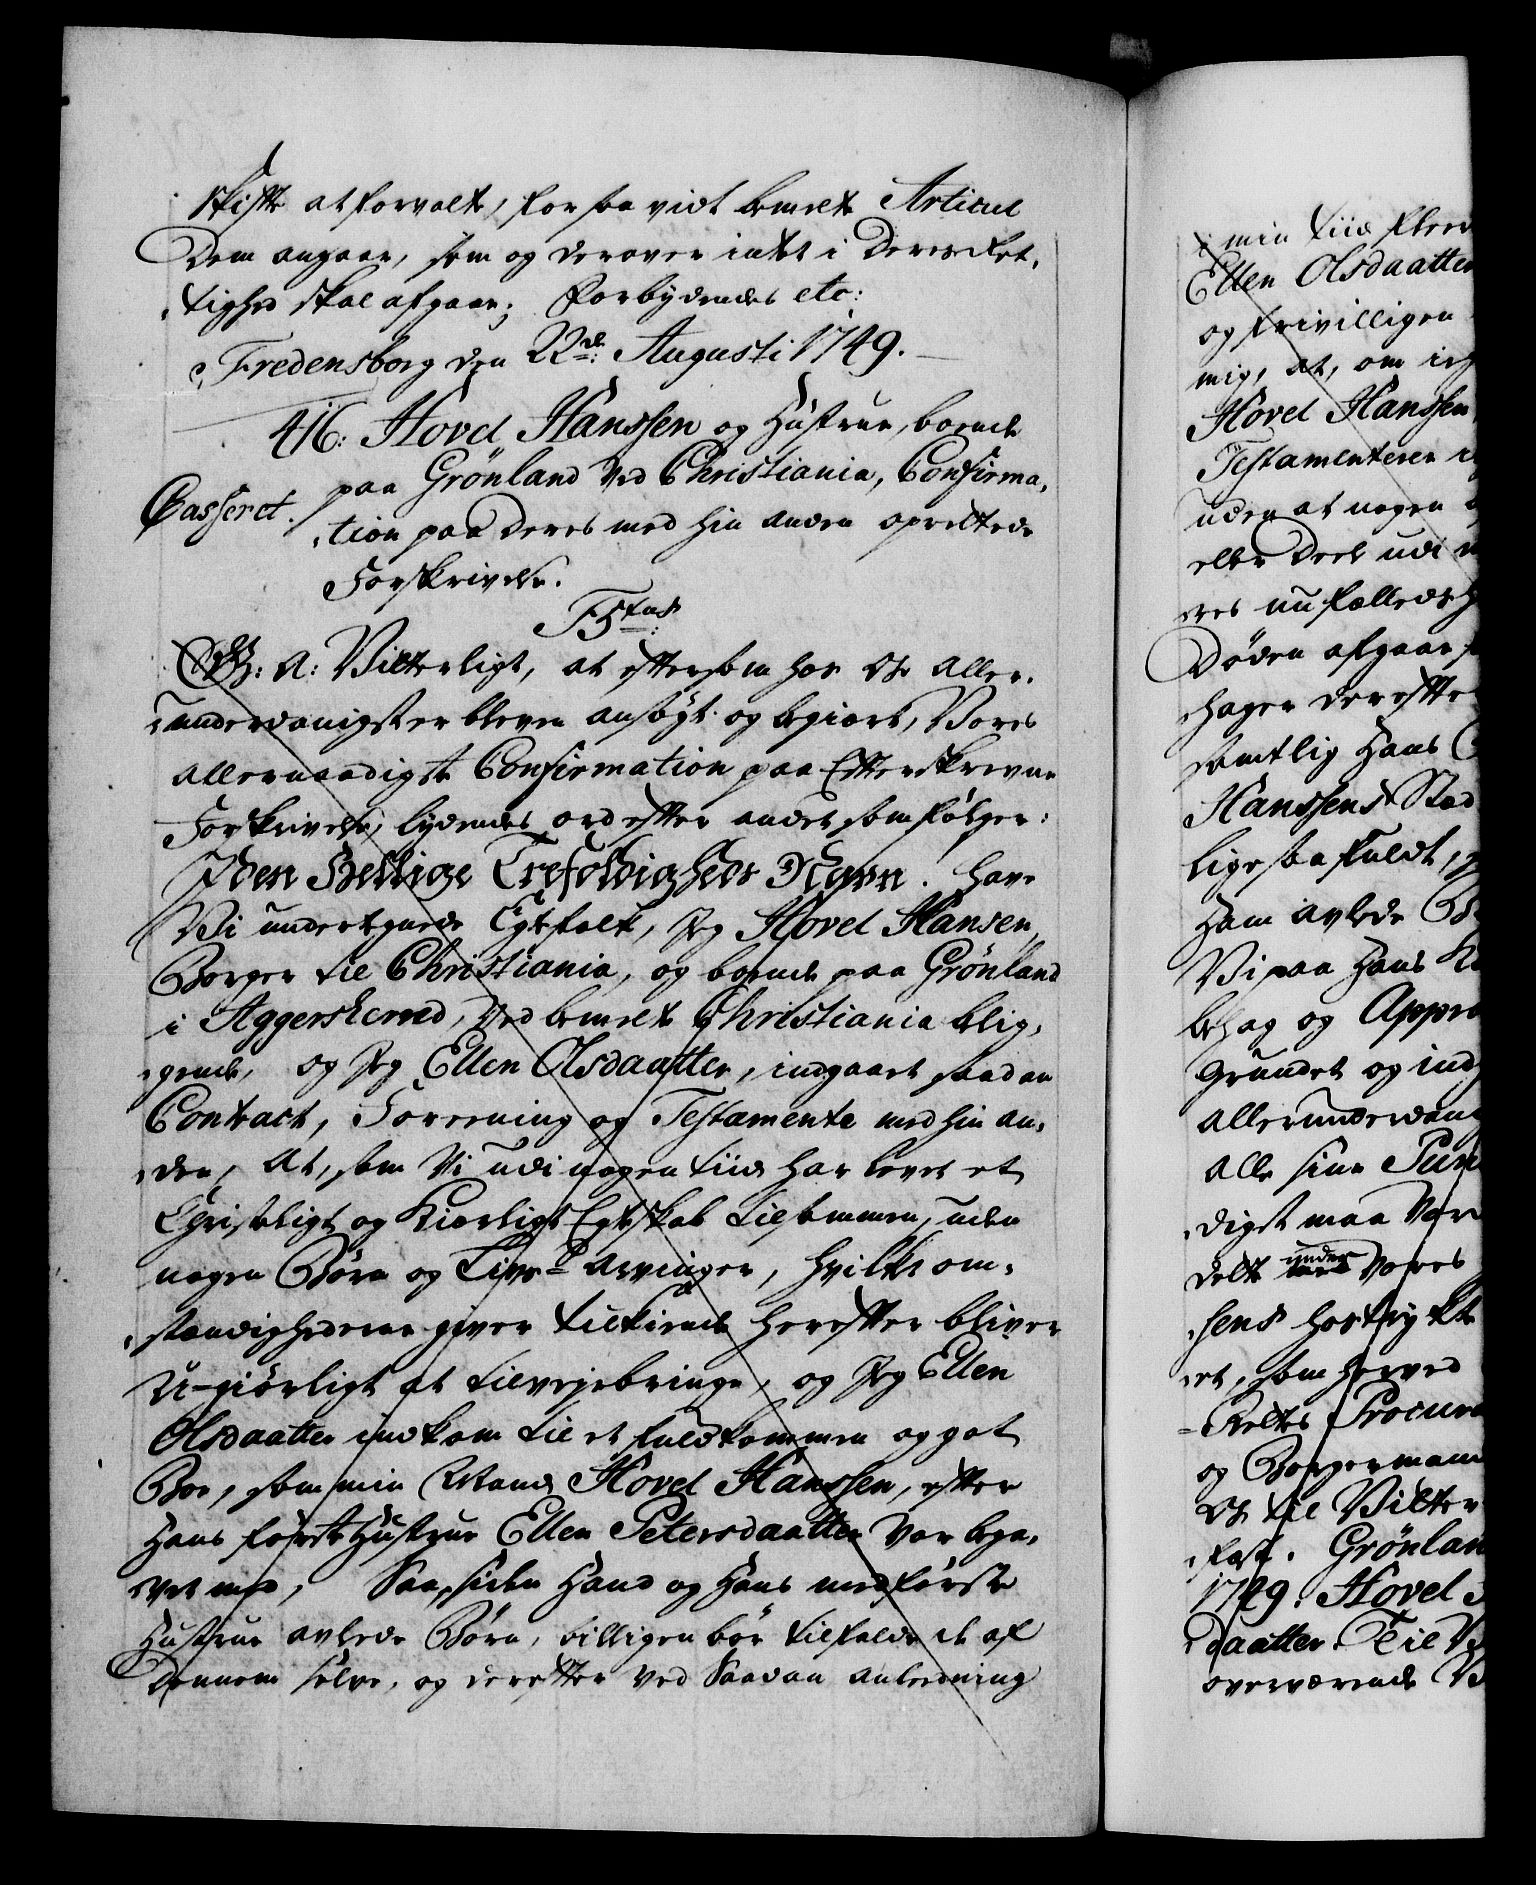 Skifte at forvalte, for saa vidt bemelte Articul
Dem angaar, som og derover intet i Deres Ret-
tighed skal afgaae; Forbydendes etc:
Fredensborg den 22de: Augusti 1749.
416: Hovel Hanssen og Hustrue, boende
paa Grönland ved Christiania, Confirma-
Casseret.
tion paa Deres med hin anden oprettede
Forskrivelse.
F5tus
G: A: Vitterligt, at eftersom hos Os aller-
underdanigst er bleven ansøgt og begiært, Vores
allernaadigste Confirmation paa Efterskrevne
Forskrivelse, lydendes ord efter andet som følger:
I Den Hellige Trefoldigheds Navn. Have
Vi undertegnede Egtefolk, Jeg Hovel Hansen,
Borger til Christiania, og boende paa Grönland
i Aggersherred, ved bemelte Christiania belig-
gende, og Jeg Ellen Olsdaatter, indgaaet saadan
Contract, Foreening og Testamente med hin an-
den, at, som Vi udi nogen tiid har levet et
Christeligt og Kierligt Egteskab tilsammen, uden
nogen Børn og Livs-Arvinger, hvilke om-
stændighederne giver tilkiende herefter bliver
U-giörligt at tilvejebringe, og Jeg Ellen
Olsdaatter indkom til et fuldkommen og got
Boe, som min Mand Hovel Hanssen, efter
Hans første Hustrue Ellen Petersdaatter var bega-
vet med, Saa, siden Hand og Hans med første
Hustrue avlede Børn, billigen bør tilfalde det af
Dennem selve, og derefter ved Saadan anledning
i min tiid
Ellen Olsdaatter
og frivilligen
mig, at, om
Hovel Hanssen
Testamenterer
uden at nogen
eller Deel udi
res nu fælleds
Døden afgaar
hager derefter
samtlig Hans
Hanssens Sted
ligesaa fuldt,
Ham avlede
Vi paa Hans
behag og Appro
Grundet og ind
allerunderdan
alle sine Pun
digst maa Vor
delte under Vores
sens hostrykte
et, som herved
Rettes Procura
og Borgermand
Os til Vitter
fæst. Grönlan
1749. Hovel
daatter. Til V
overværende